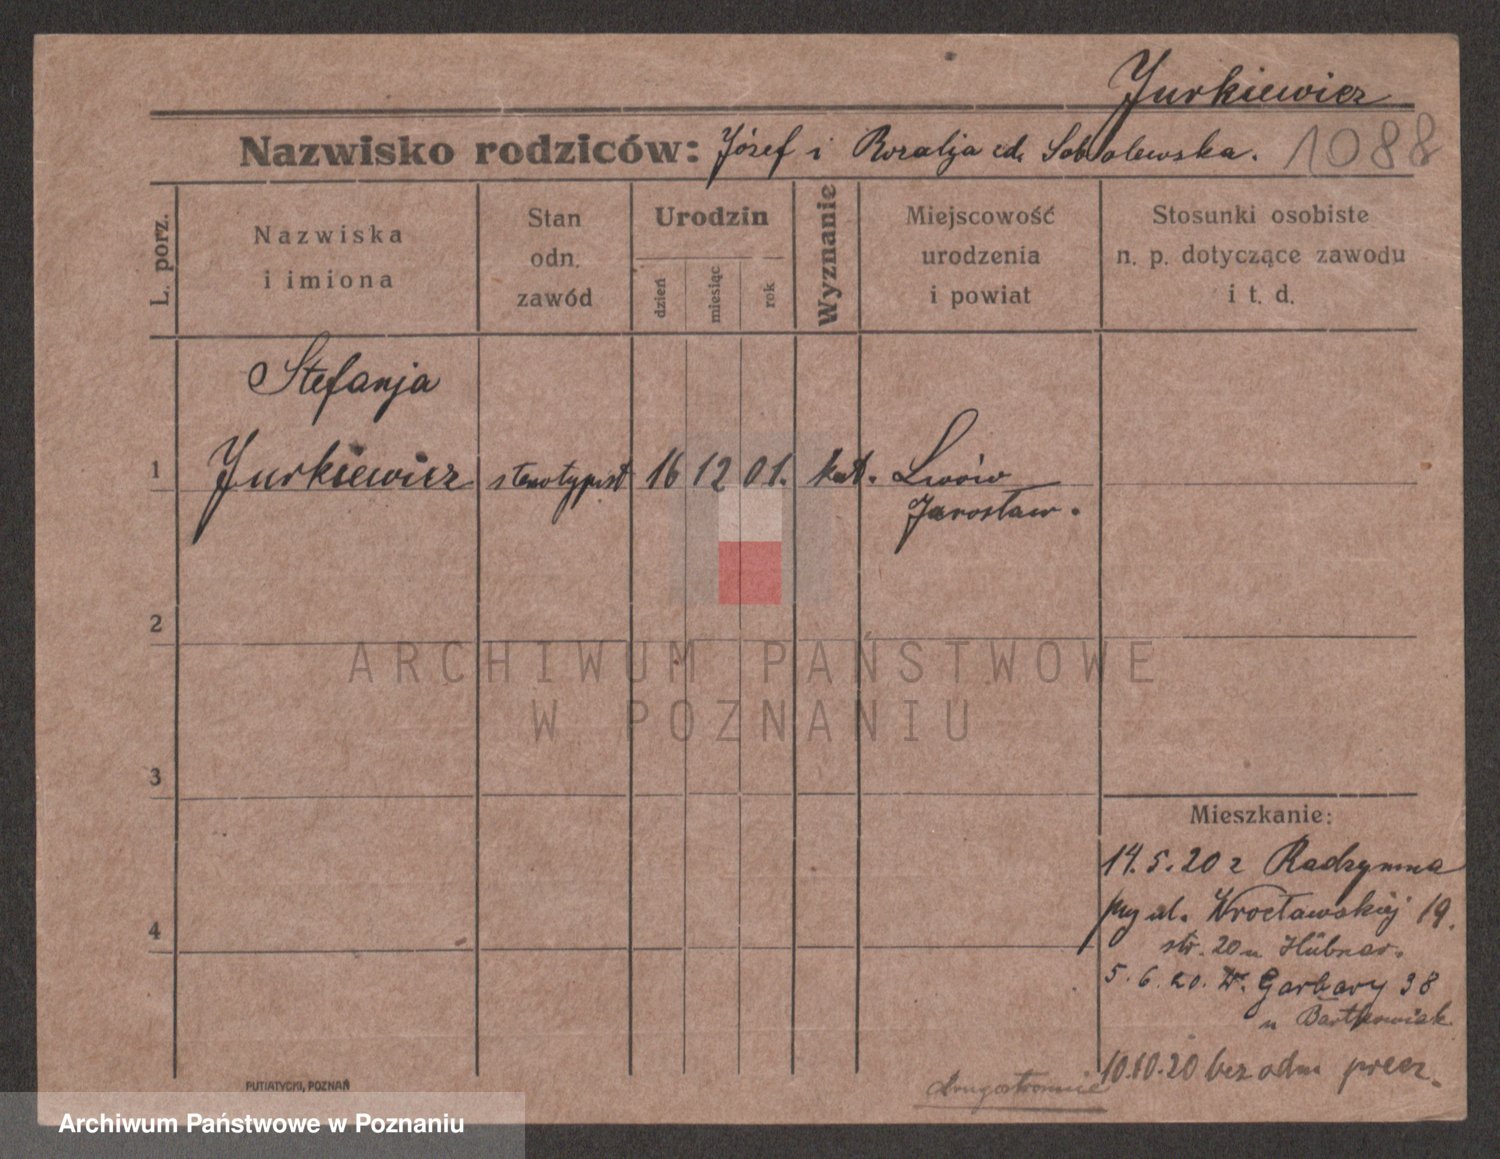 Jurkiewicz
Nazwisko rodziców: Józef i Rozalja cd. Sobolewska. 1088
L. porz.
Nazwiska
i imiona
Stan
odn.
zawód
Urodzin
dzień
miesiąc
rok
Wyznanie
Miejscowość
urodzenia
i powiat
Stosunki osobiste
n. p. dotyczące zawodu
i t. d.
Stefanja
1 Jurkiewicz stenotypist 16 12 01. kat. Lwów
Jarosław.
2
ARCHIWUM PAŃSTWOWE
W POZNANIU
3
Mieszkanie:
14.5.20 z Radzymina
przy ul. Wrocławskiej 19.
4
str. 20 u Hübner.
5.6.20. W. Garbary 38
u Bartkowiak
10.10.20 bez odm precz.
drugostronnie
PUTIATYCKI, POZNAŃ
Archiwum Państwowe w Poznaniu